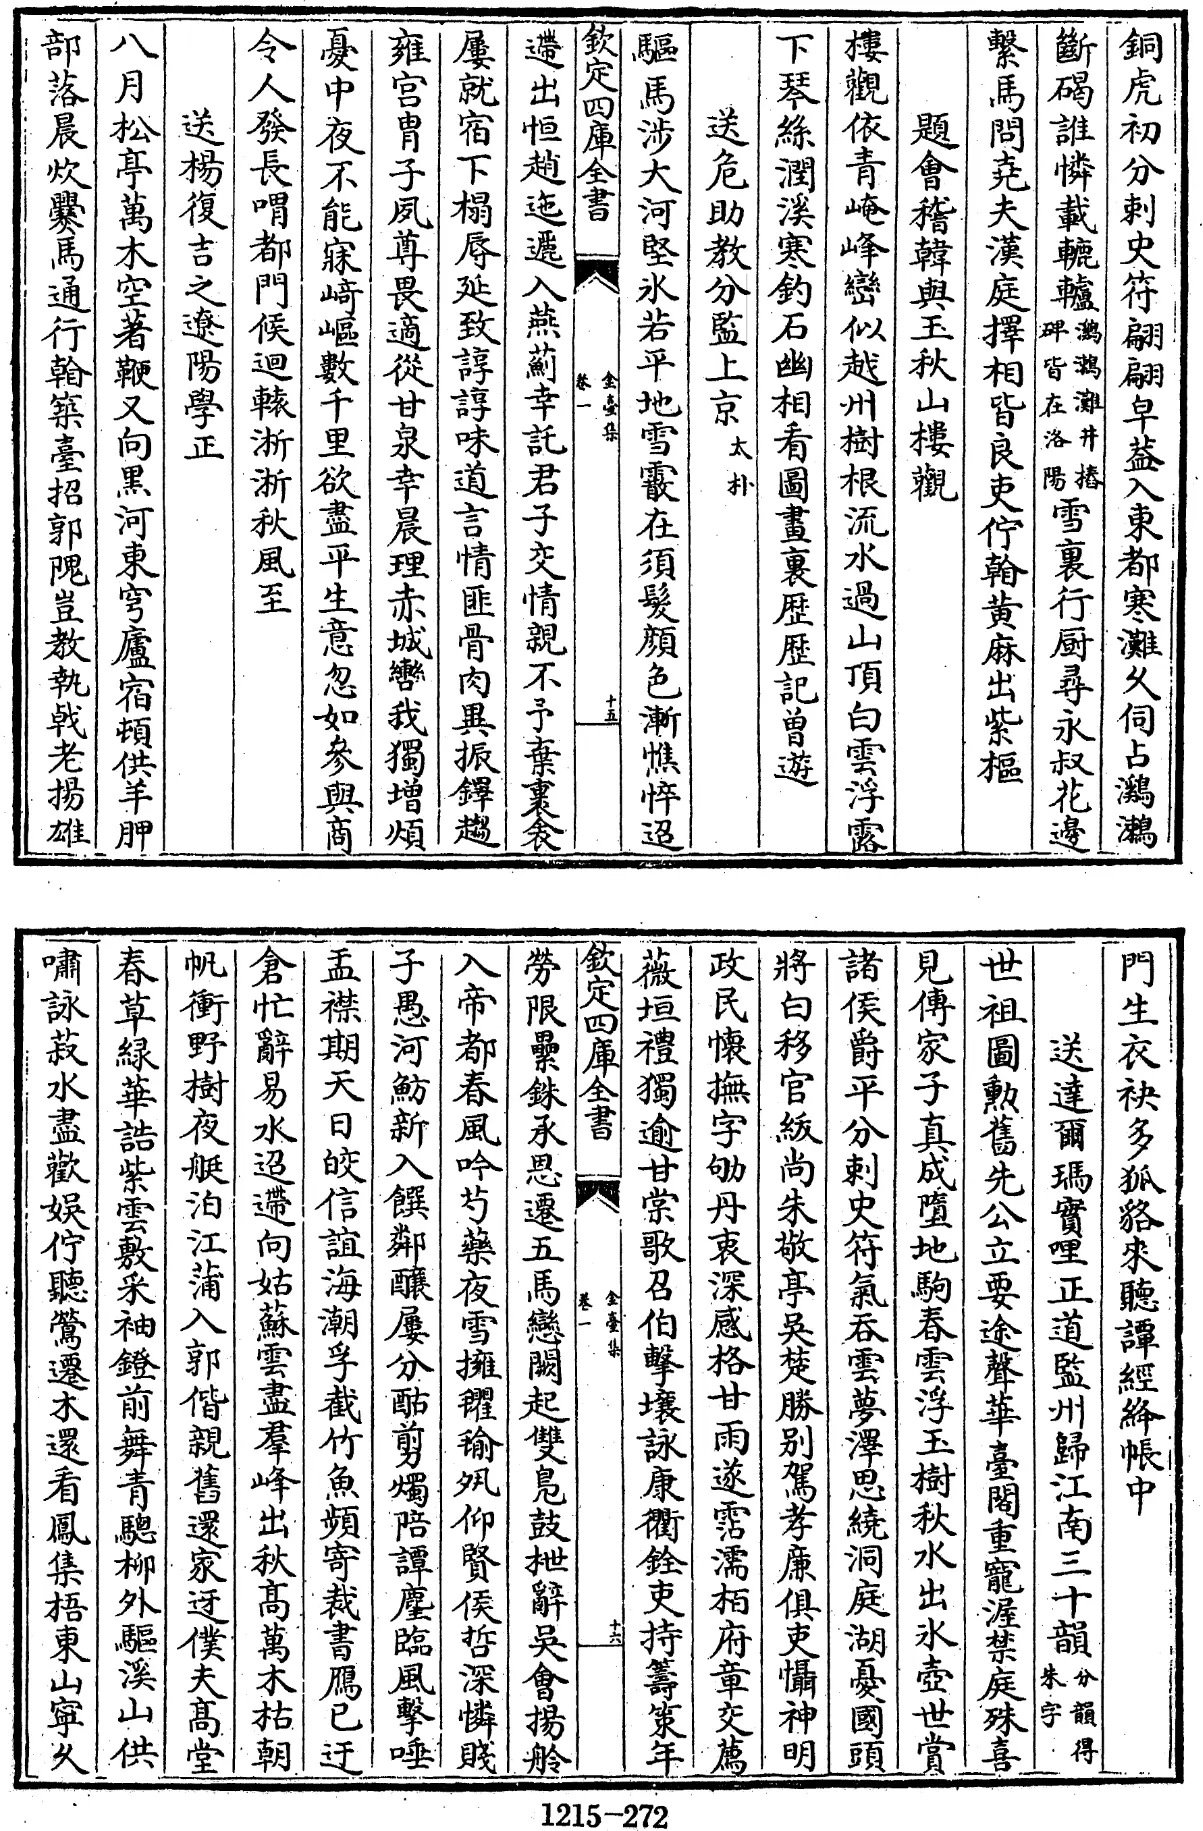 銅虎初分刺史符翩翩皁葢入東都寒灘久伺占鸂鶒
斷碣誰憐載轆轤鸂鶒灘井樁碑皆在洛陽雪裏行厨尋永叔花邊
繫馬問堯夫漢庭擇相皆良吏佇翰黄麻出紫樞
題會稽韓與玉秋山樓觀
樓觀依青崦峰巒似越州樹根流水過山頂白雲浮露
下琴絲潤溪寒釣石幽相看圖畫裏歷歷記曽遊
送危助教分監上京太朴
驅馬涉大河堅氷若平地雪霰在須髮顔色漸憔悴迢
欽定四庫全書
金臺集
卷一
十五
遰出恒趙迤邐入燕薊幸託君子交情親不予棄裏衾
屢就宿下榻辱延致諄諄味道言情匪骨肉異振鐸趨
雍宫胄子夙尊畏適從甘泉幸晨理赤城轡我獨増煩
憂中夜不能寐﨑嶇數千里欲盡平生意忽如參與商
令人發長喟都門候迴轅淅淅秋風至
送楊復吉之遼陽學正
八月松亭萬木空著鞭又向黒河東穹廬宿頓供羊胛
部落晨炊爨馬通行翰築臺招郭隗豈教執戟老揚雄
門生衣袂多狐貉來聽譚經絳帳中
送達爾瑪實哩正道監州歸江南三十韻分韻得朱字
世祖圖勲舊先公立要途聲華臺閣重寵渥禁庭殊喜
見傳家子真成墮地駒春雲浮玉樹秋水出氷壺世賞
諸侯爵平分刺史符氣吞雲夢澤思繞洞庭湖憂國頭
將白移官紱尚朱敬亭吳楚勝别駕孝廉俱吏懾神明
政民懷撫字劬丹衷深感格甘雨遂霑濡栢府章交薦
薇垣禮獨逾甘棠歌召伯擊壤詠康衢銓吏持籌筞年
欽定四庫全書
金臺集
卷一
十六
勞限纍銖承恩遷五馬戀闕起雙鳬鼓枻辭吳會揚舲
入帝都春風吟芍藥夜雪擁氍毹夙仰賢侯哲深憐賤
子愚河魴新入饌鄰釀屢分酤剪燭陪譚麈臨風擊唾
盂襟期天日皎信誼海潮孚截竹魚頻寄裁書鴈已迂
倉忙辭易水迢遰向姑蘇雲盡羣峰出秋髙萬木枯朝
帆衝野樹夜艇泊江蒲入郭偕親舊還家迓僕夫髙堂
春草緑華誥紫雲敷采袖鐙前舞青驄柳外驅溪山供
嘯詠菽水盡歡娱佇聽鶯遷木還看鳳集梧東山寧久
1215-272